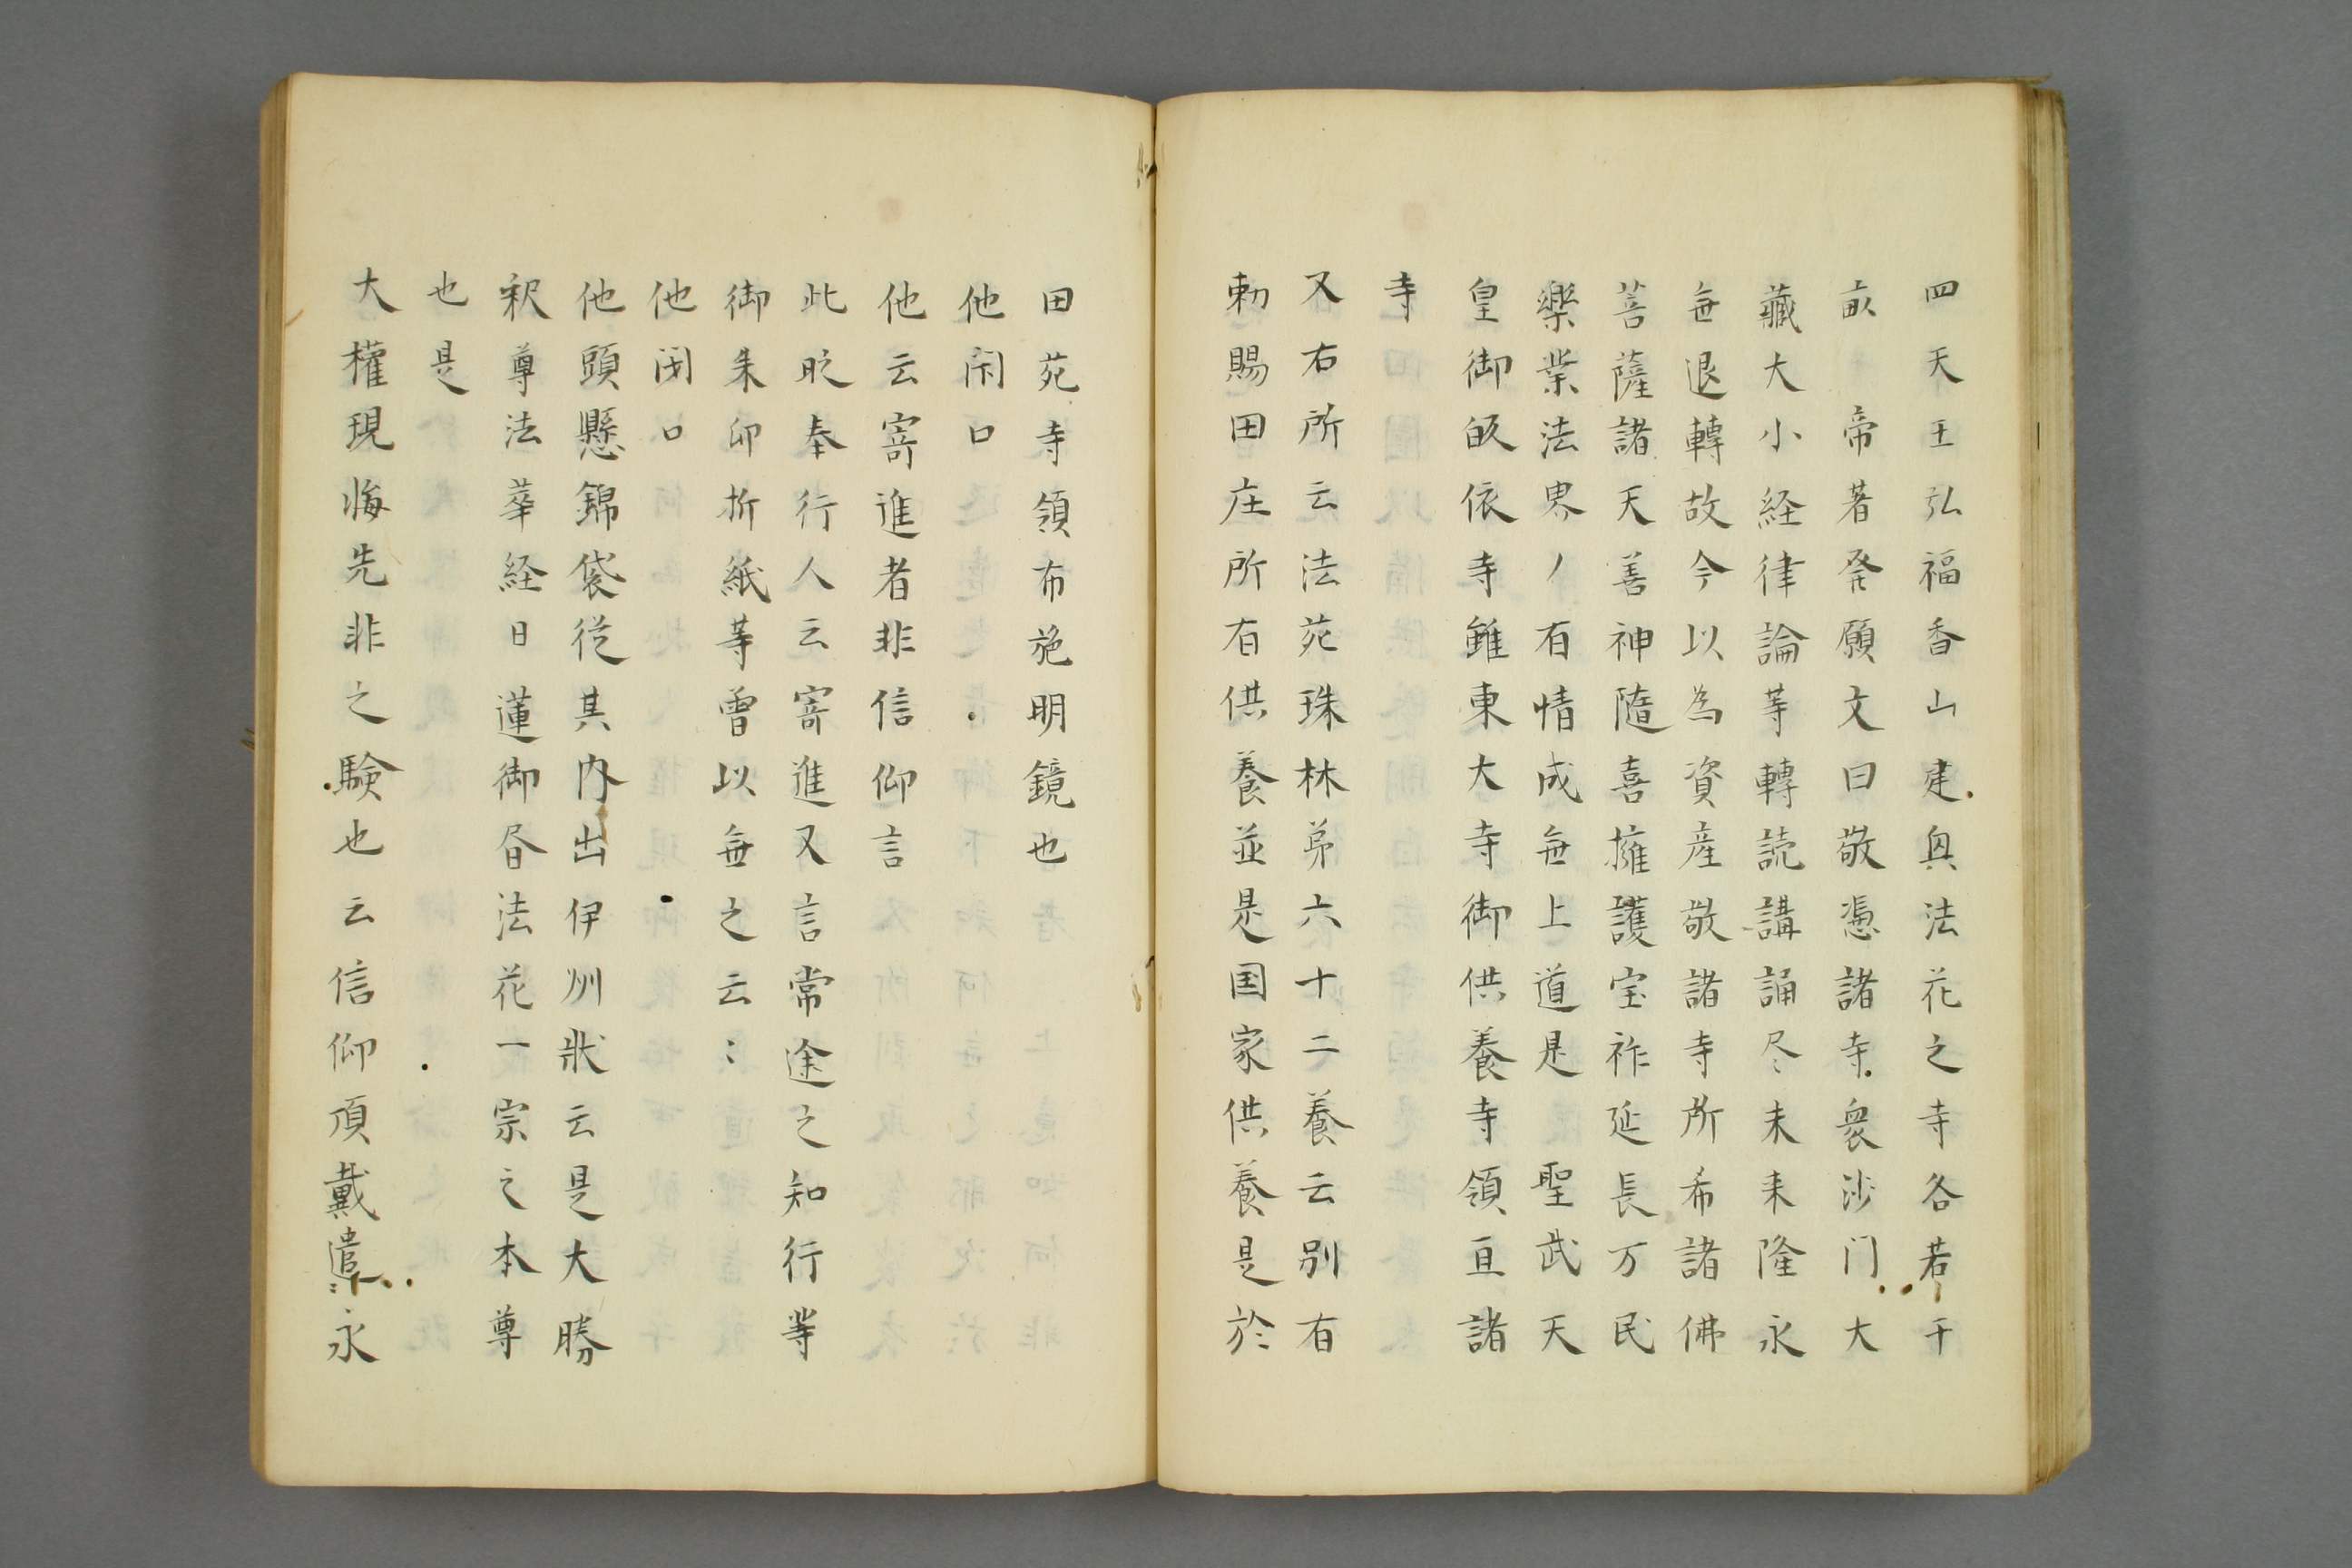 四天王弘福香山建興法花之寺各若干
畝　帝著発願文曰敬憑諸寺衆沙门大
藏大小経律論等轉読講誦尽未来隆永
無退轉故今以為資産敬諸寺所希諸佛
菩薩諸天善神隨喜擁護宝祚延長万民
樂業法界ノ有情成無上道是　聖武天
皇御皈依寺雖東大寺御供養寺領亘諸
寺
又右所云法苑珠林第六十二養云別有
勅賜田庄所有供養並是国家供養是於
田苑寺領布施明鏡也
他閇口
他云寄進者非信仰言
此贬奉行人云寄進又言常途之知行等
御朱印折紙等曽以無之云〻
他閇口
他頭懸錦袋従其内出伊州状云是大勝
釈尊法華経日蓮御昼法花一宗之本尊
也是
大權現悔先非之験也云信仰頂戴遣永